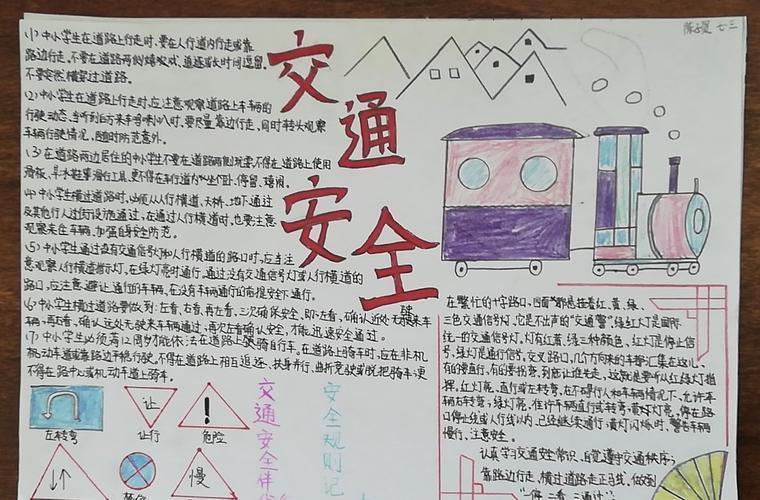 陈 七·三
交通安全
(1) 中小学生在道路上行走时,要在人行道内行走或靠
路边行走,不要在道路两侧嬉戏、追逐或长时间逗留,
不要突然横穿过道路。
(2) 中小学生在道路上行走时,应注意观察道路上车辆的
行驶动态,当听到后方来车鸣喇叭时,要尽量靠边行走,同时转头观察
车辆行驶情况,随时防范意外。
(3) 在道路两边居住的中小学生不要在道路两侧玩耍,不得在道路上使用
滑板、旱冰鞋等滑行工具,更不得在车行道内坐卧、停留、嬉闹。
(4) 中小学生横过道路时,必须从人行横道、天桥、地下通道
及其他行人过街设施通过,在通过人行横道时,也要注意
观察来往车辆,加强自身安防范。
(5) 中小学生通过设有交通信号灯的人行横道的路口时,应当注
意观察人行横道指示灯,在绿灯亮时通行,通过没有交通信号灯或人行横道的
路口,应注意避让通行的车辆,在没有车辆通行的前提下通行。
(6) 中小学生横过道路要做到:左看,右看,再左看,三次确保安全,即:左看,确认近处无驶来车
辆,再右看,确认远处无驶来车辆通过,再次左看确认安全,才能迅速安全通过。
(7) 中小学生必须满12周岁能依法在道路上骑自行车。在道路上骑车时,应在非机
机动车道或靠路边平稳行驶,不得在道路上相互追逐、扶身并行、曲折竞驶或脱把骑车,更
不得在路中心或机动车道上骑车。
在繁忙的十字路口,四面都悬挂着红、黄、绿、
三色交通信号灯,它是不出声的“交通警”,绿红灯是国际
统一的交通信号灯。灯有红黄、绿三种颜色,红灯是停止信
号,绿灯是通行信号,交叉路口,几个方向来的车都汇集在这儿,
有的要直行,有的要拐弯,到底让谁先走,这就是要听从红绿灯指
挥,红灯亮,直行或左转弯,在不碍行人和车辆情况下,允许车
辆右转弯;绿灯亮,准许车辆直行或转弯;黄灯灯亮,停在路
口停止线或人行线以内,已经继续通行;黄灯闪烁时,警告车辆
慢行、注意安全。
认真学习交通安全常识,自觉遵守交通秩序;
靠路边行走,横过道路走斑马线,做到
“一停二看三通过”;
左转弯
让
让行
!
危险
慢
交通安全伴
安全规则记